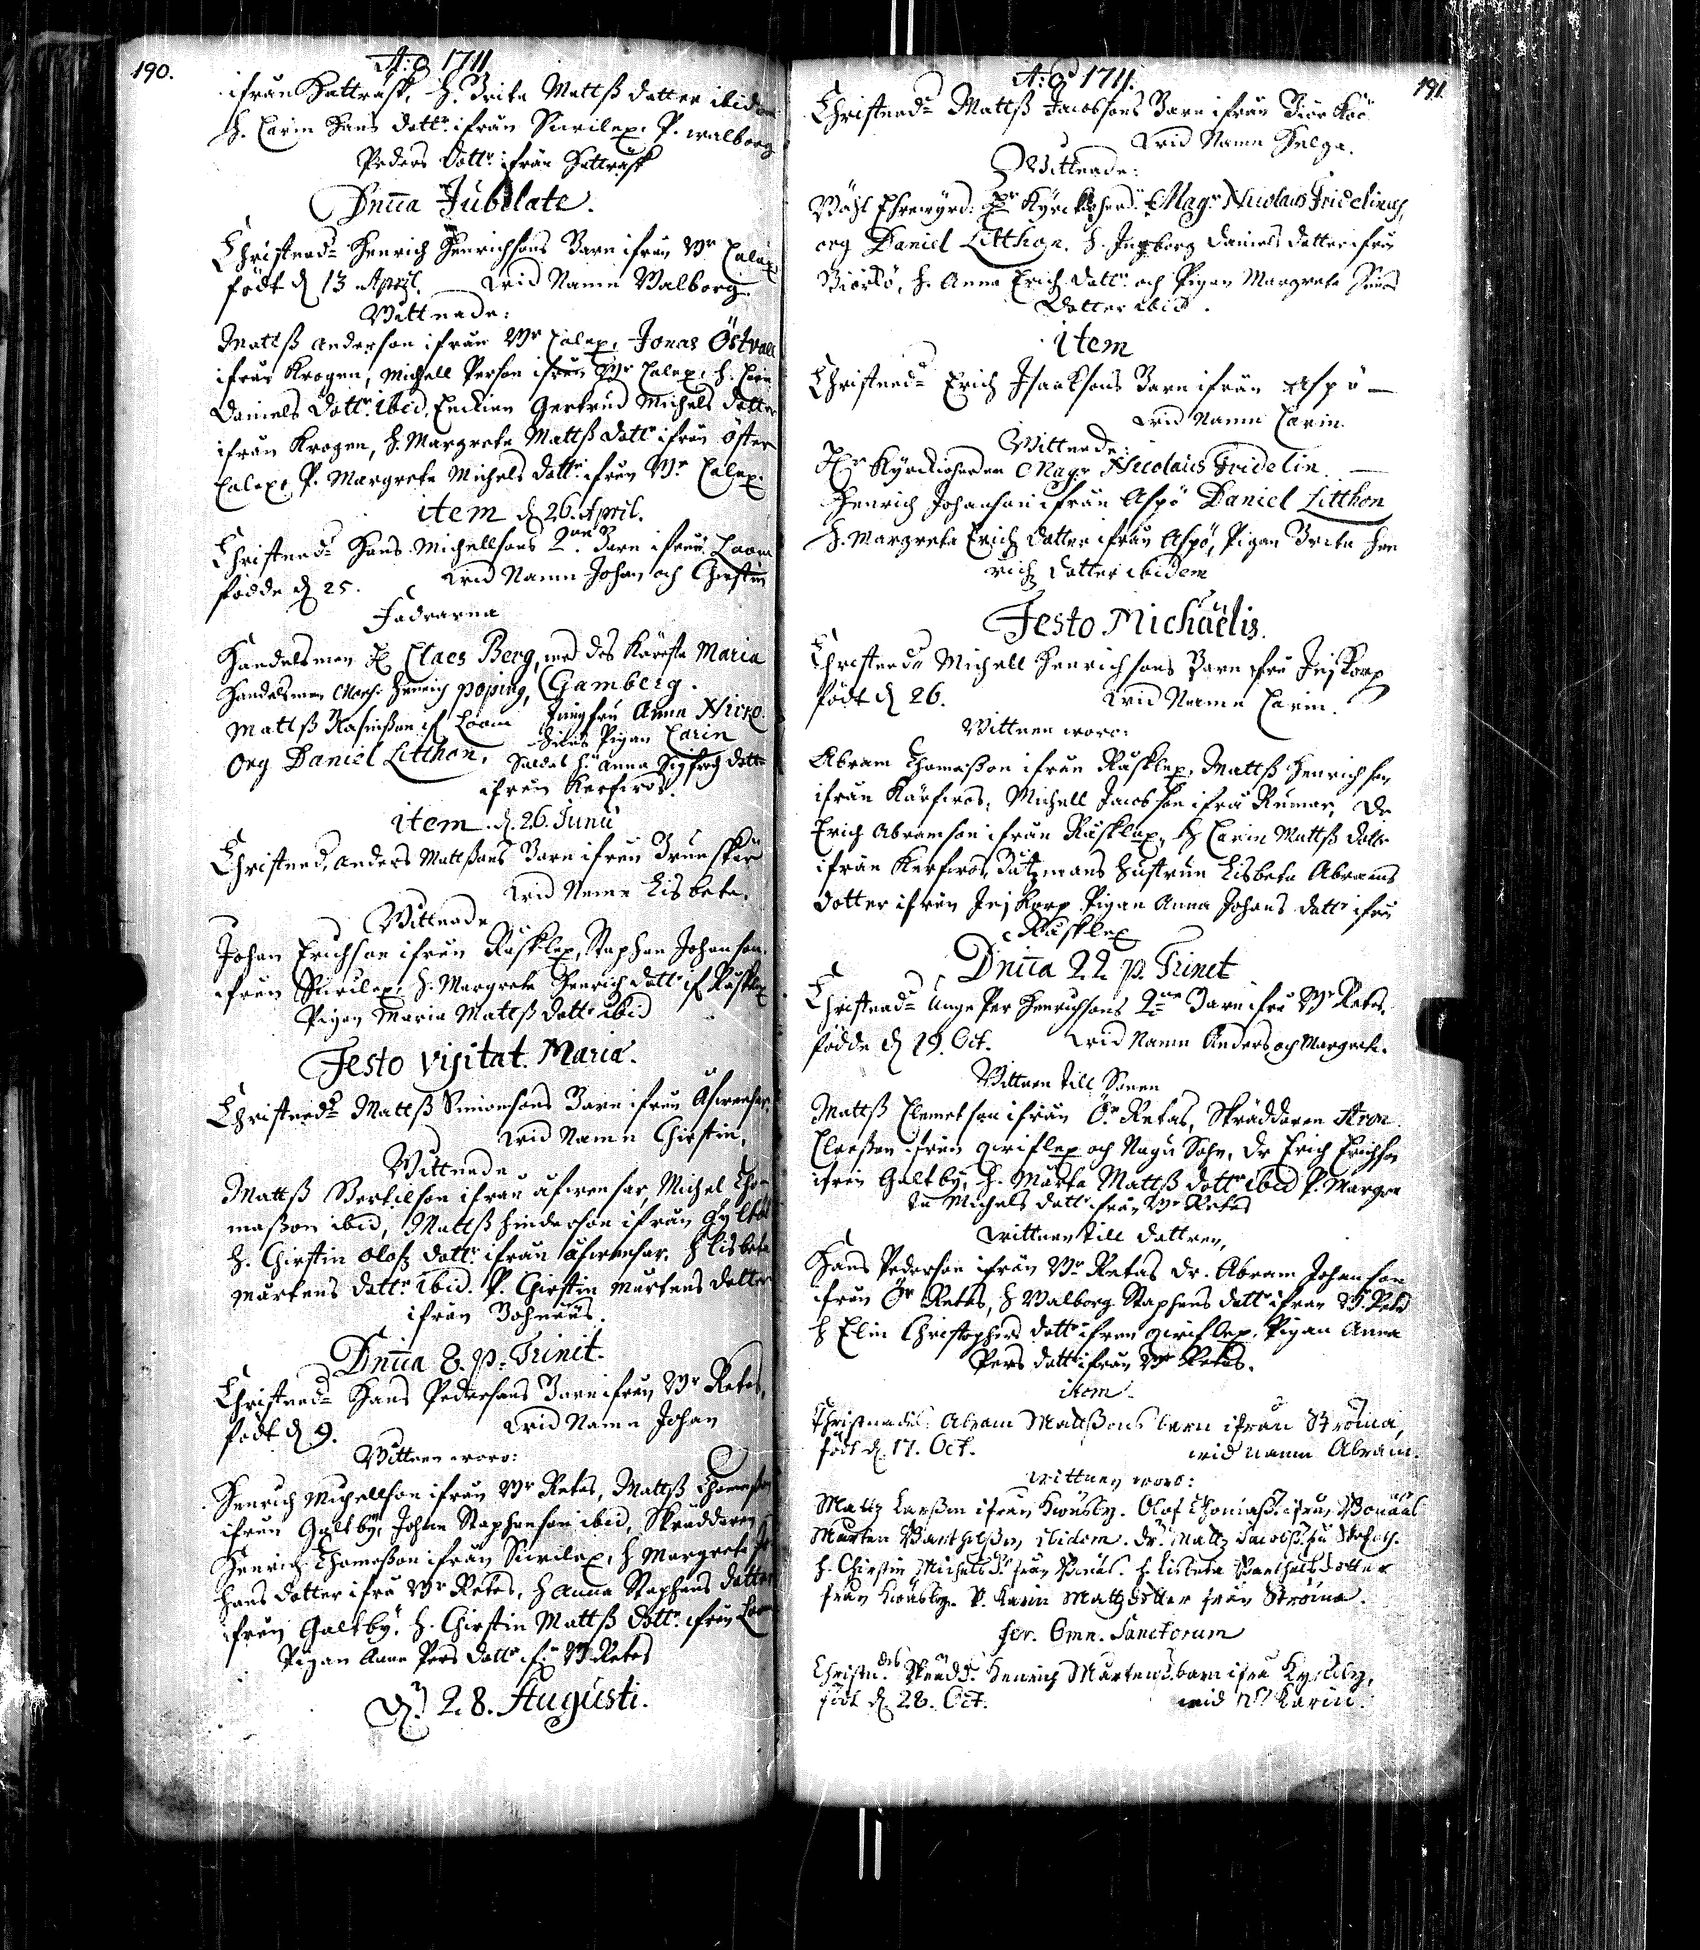 190.
A:o 1711
ifrån Hattrask, H. Brita Mattß datter ibidem
H. Carin Hans dott:r ifrån Sirvilax. P. walborg
Peders dott:r ifrån Hattrask
Dnica Jubilate.
Christnad:s Henrich Henrichsons Barn ifrån W:r Calax
födt d 13 April. wid Namn Walborg.
Wittnade:
Mattß anderson ifrån W:r Calax, Jonas Östvall
ifrån Krogen, Michell Person ifrån W:r Calax, H. Carin
Daniels dott:r ibid, Enckian Gertrud Michels datter
ifrån Krogen, H. Margreta Mattß dott:r ifrån Öster
Calax, P. Margreta Michels dott:r ifrån W:r Calax.
item d 26. April.
Christnad:s Hans Michellsons 2:ne Barn ifrån Loom
födde d 25. wid Namn Johan och Chirstin
Fadrarna
Handelsman H Claes Berg, med des Käresta Maria
Handelsman Henrich poping, (Gamberg.
Mattß if Loom Jungfru Anna
Org Daniel Litthon, Pigan Carin
H. Anna Sigfredz dotter
ifrån Kerfwos.
item. d. 26. Junii
Christnad. Anders Mattßons Barn ifrån Brunskär
wid Namn Lisbeta.
Wittnade
Johan Erichson ifrån Räfsklax, Staphan Johanson
ifrån Sirvilax, H. Margreta Henrich dott:r if Räfsklax
Pigan Maria Mattß dott:r ibid
Festo visitat. Mariæ.
Christnad:s Mattß Simonsons Barn ifrån Åfwensar,
wid Namn Chirstin.
Wittnade
Mattß Bertilson ifrån åfwensar, Michel Tho-
maßon ibid, Mattß Hinderson ifrån Gyltö
H. Chirstin Olofz dott:r ifrån åfwensar, H Lisbeta
Mårtens dott:r ibid. P. Chirstin Mårtens datter
ifrån Bohnäs.
Dnica 8. p. Trinit.
Christnad:s Hans Pedersons Barn ifrån W:r Retas,
födt d 9. wid Namn Johan
Wittnen woro:
Henrich Michellson ifrån W:r Retas, Mattß Thomaßon
ifrån Galtby, Johan Staphanson ibid, Skräddaren
Henrich Thomaßon ifrån Sirvilax, H Margreta Jo
hans dotter ifrå W:r Retas, H Anna Staphans datter
ifrån Galtby, H. Chirstin Mattß dott:r ifrån Loom
Pigan Anna Pers dott:r if:n W Retas
D. 28. Augusti.
191.
A:o 1711.
Christnad:s Mattß Jacobsons Barn ifrån Biörkö
wid Namn Helga.
Wittnade:
Wähl Ehrewyrd: H:r Kyrckioherd: Mag:r Nicolaus Fridelinus,
org Daniel Litthon. H. Ingborg Daniels datter ifrån
Biörkö, H. Anna Erich dott:r och Pigan Margreta Sims
Datter ibid.
item
Christnad:s Erich Isaaksons Barn ifrån Aspö
wid Namn Carin
Wittnade:
H:r Kyrckioherden Mag:r Nicolaus Fridelin
Henrich Johanson ifrån Aspö Daniel Litthon
H. Margreta Erich datter ifrån Aspö, Pigan Brita Hen
rich datter ibidem
Festo Michaëlis.
Christnad:s Michell Henrichsons Barn ifrå
födt d 26. wid Namn Carin.
Wittnen woro:
Abram Thomaßon ifrån Räfsklax, Mattß Henrichson
ifrån Kärfwos, Michell Jacobson ifrå Rumar, Dr
Erich Abramson ifrån Räfsklax, H Carin Mattß datter
ifrån Kerfwos, hustrun Lisbeta Abrams
dotter ifrån Pigan Anna Johans dott:r ifrån
Räfsklax
Dnica 22 p. Trinit
Christnad:s Unge Per Henrichsons 2:ne Barn ifrå W:r Retas,
födde d 19. Oct. wid Namn Anders och Margreta.
Wittnen till Sonen
Mattß Clemetson ifrån Ö:r Retas, Skräddaren Aron
Claeßon ifrån qwiflax och Nagu Sohn, Dr Erich Erichson
ifrån Galtby, H. Märta Mattß dott:r ibid P. Margre
ta Michels dott:r ifrån W:r Retas
wittnen till dottren,
Hans Pederson ifrån W:r Retas Dr. Abram Johanson
ifrån Ö:r Retas, H Walborg Staphens dott:r ifrån W. Retas
H Elin Christophers dott:r ifrån qwiflax, Pigan Anna
Pers dott:r ifrån W:r Retas.
item.
Christnades: Abram Mattßons barn ifrån Ströma,
födt d. 17. Oct. wid namn Abram.
wittnen woro:
Mattz Larßon ifrån Kwisby. Olof Thomaß: ifrån Bonäs
Mårten Barthelßon, ibidem. Dr. Mattz Jacobß:
H. Chirstin Michels d:r från Bonäs. H. Lisbeta Barthels dotter
från Kwisby. P. Karin Mattz dotter från Ströma.
fer. Omn. Sanctorum
Christn:des Skrädd: Henrich Mårtens barn ifrå
födt d. 28. Oct. wid N: Karin.